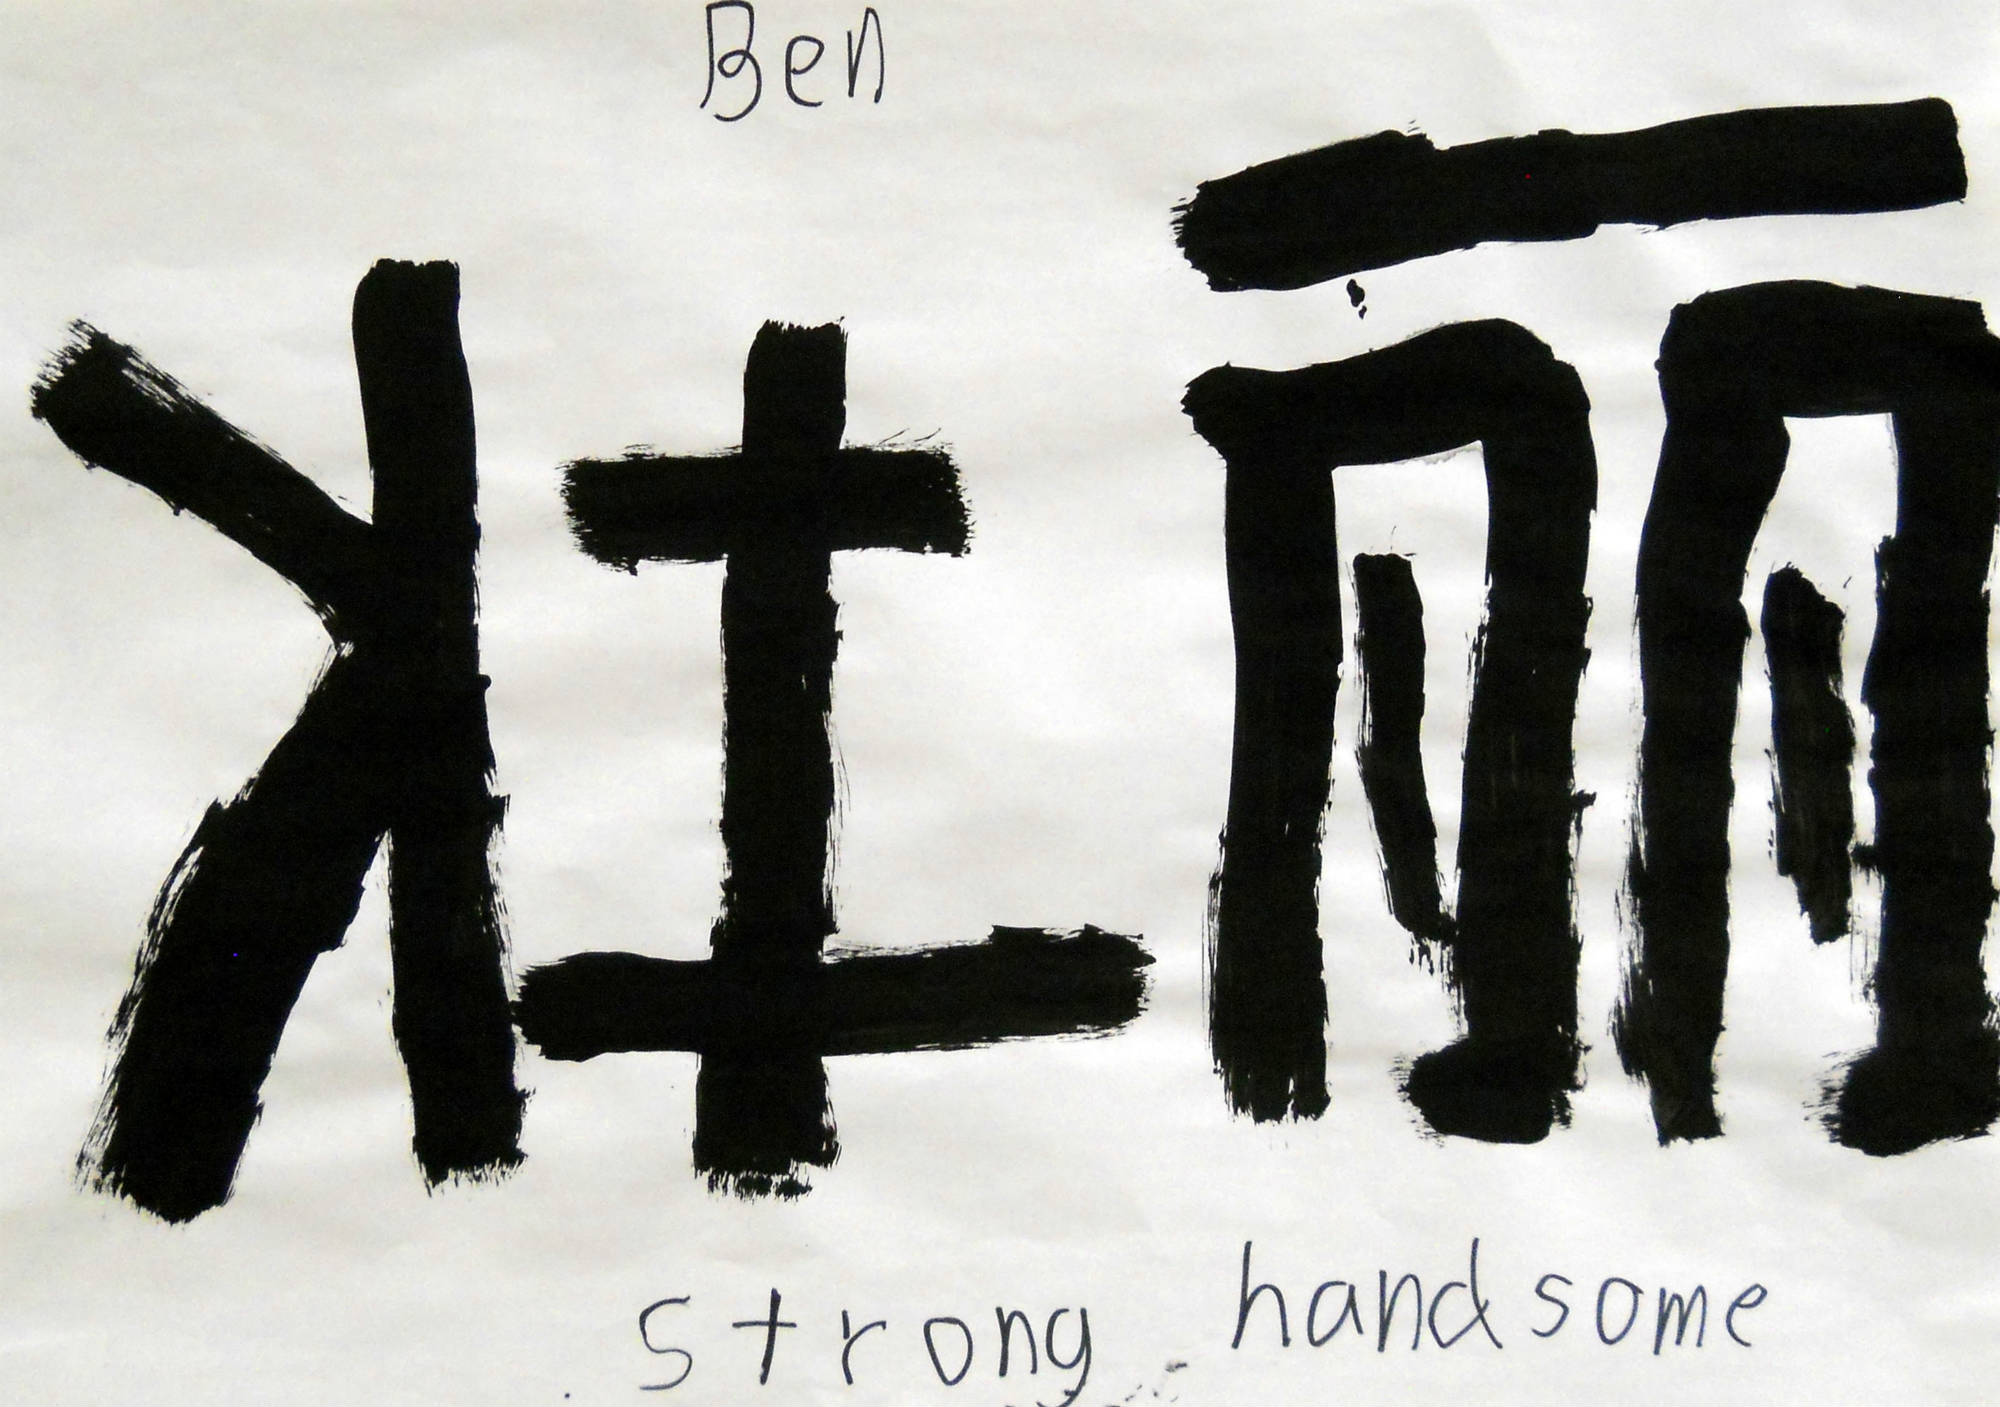 Ben
壮丽
strong handsome